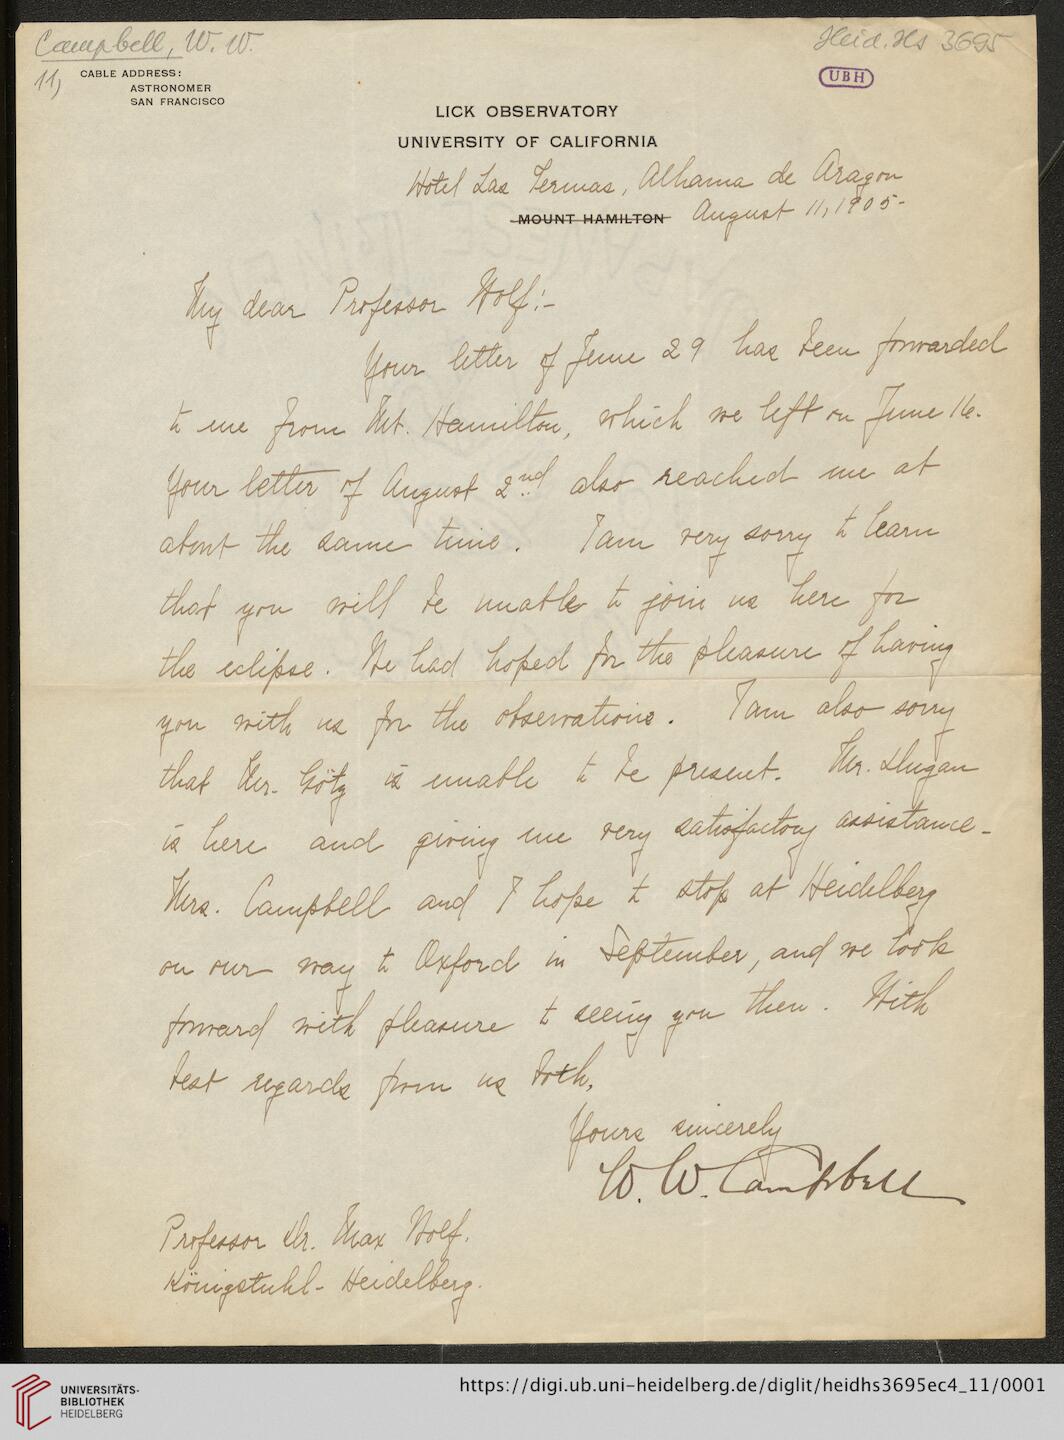 Campbell, W. W.
Heid. Hs 3695
11)
CABLE ADDRESS:
ASTRONOMER
SAN FRANCISCO
UBH
LICK OBSERVATORY
UNIVERSITY OF CALIFORNIA
Hotel Las Termas, Alhama de Aragon
MOUNT HAMILTON August 11, 1905-
My dear Professor Wolf:-
Your letter of June 29 has been forwarded
to me from Mt. Hamilton, which we left on June 16.
Your letter of August 2nd also reached me at
about the same time. I am very sorry to learn
that you will be unable to join us here for
the eclipse. We had hoped for the pleasure of having
you with us for the observations. I am also sorry
that Mr. Götz is unable to be present. Mr. Dugan
is here and giving me very satisfactory assistance-
Mrs. Campbell and I hope to stop at Heidelberg
on our way to Oxford in September, and we look
forward with pleasure to seeing you then. With
best regards from us both,
Yours sincerely
W. W. Campbell
Professor Dr. Max Wolf.
Königstuhl- Heidelberg.
UNIVERSITÄTS-
BIBLIOTHEK
HEIDELBERG
https://digi.ub.uni-heidelberg.de/diglit/heidhs3695ec4_11/0001